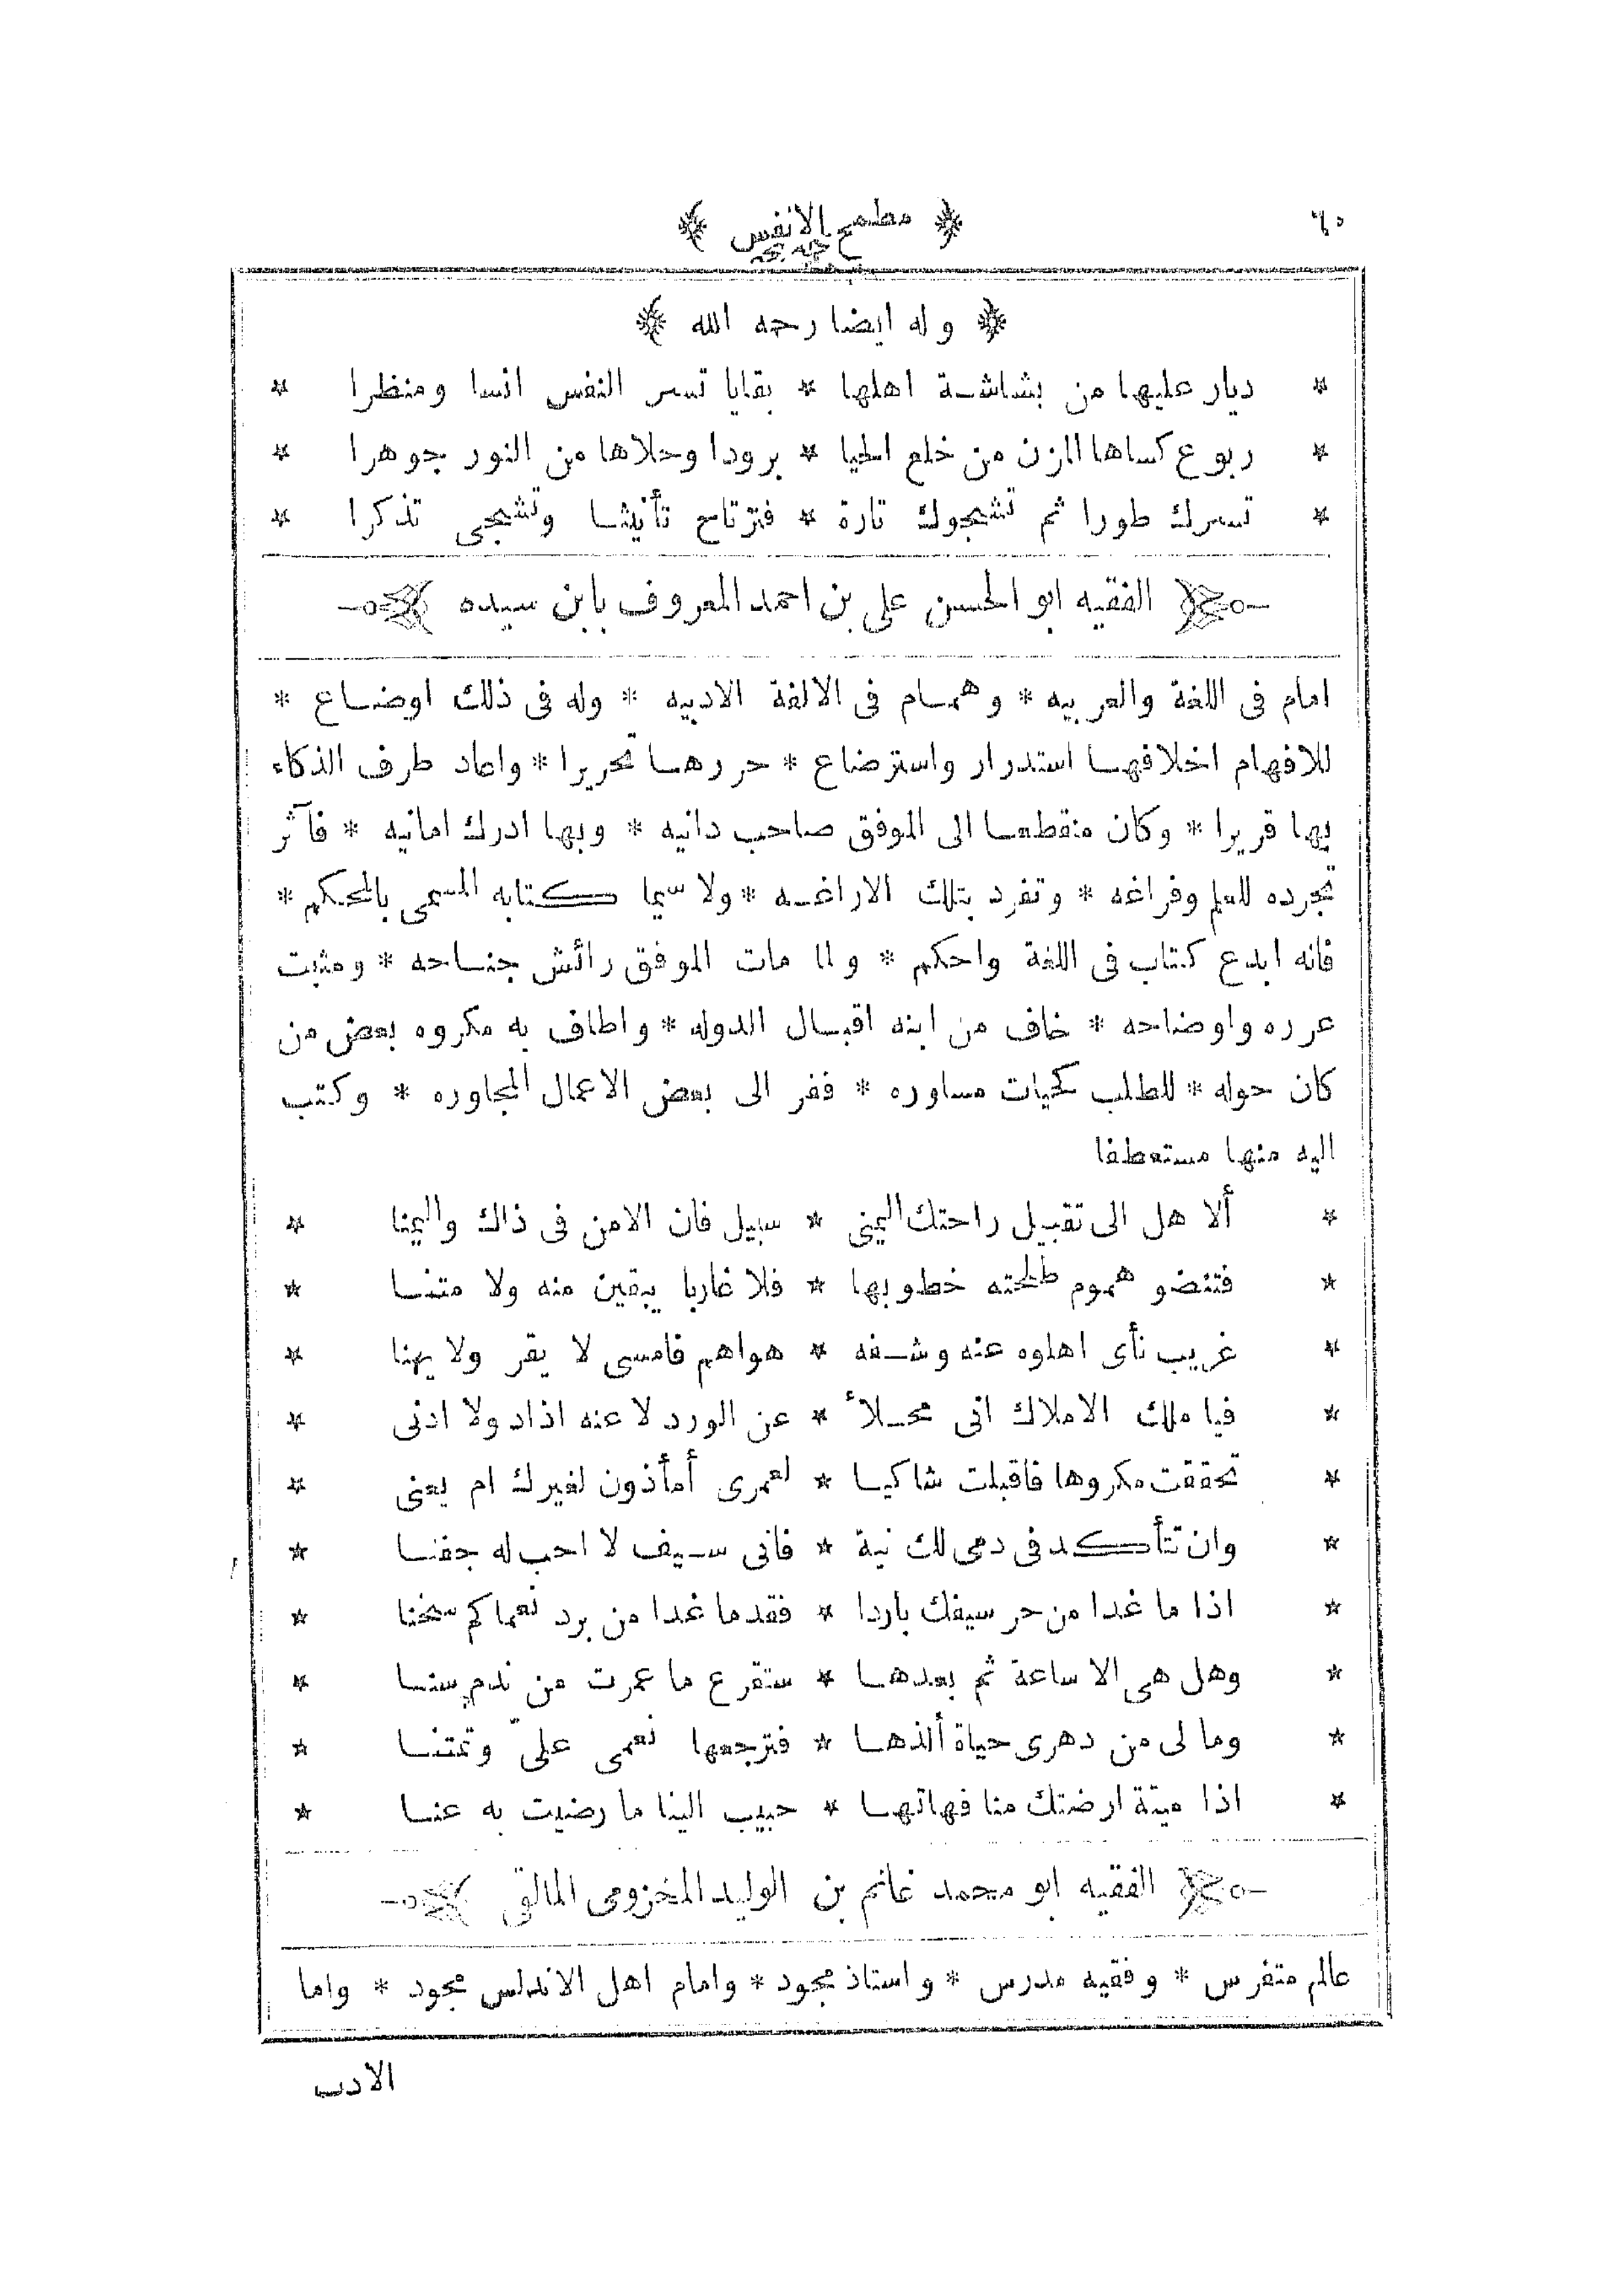 ٦٠ ﴿ مطمح الانفس ﴾
﴿ وله ايضا رحمه الله ﴾
* ديار عليها من بشاشة اهلها * بقايا تسر النفس انسا ومنظرا *
* ربوع كساها المزن من خلع الحيا * برودا وحلاها من النور جوهرا *
* تسرك طورا ثم تشجوك تارة * فترتاح تأنيثا وتشجى تذكرا *
الفقيه ابو الحسن على بن احمد المعروف بابن سيده
امام فى اللغة والعربيه * وهمام فى الالفة الادبيه * وله فى ذلك اوضاع *
للافهام اخلافها استدرار واسترضاع * حررها تحريرا * واعاد طرف الذكاء
بها قريرا * وكان منقطعا الى الموفق صاحب دانيه * وبها ادرك امانيه * فآثر
تجرده للعلم وفراغه * وتفرد بتلك الاراغه * ولا سيما كتابه المسمى بالمحكم *
فانه ابدع كتاب فى اللغة واحكم * ولما مات الموفق رائش جناحه * ومثبت
غرره واوضاحه * خاف من ابنه اقبال الدوله * واطاف به مكروه بعض من
كان حوله * للطلب كحيات مساوره * ففر الى بعض الاعمال المجاوره * وكتب
اليه منها مستعطفا
* ألا هل الى تقبيل راحتك اليمنى * سبيل فان الامن فى ذاك واليمنا *
* فتنضو هموم طلحته خطوبها * فلا غاربا يبقين منه ولا متنا *
* غريب نأى اهلوه عنه وشفه * هواهم فامسى لا يقر ولا يهنا *
* فيا ملك الاملاك انى محلأ * عن الورد لا عنه اذاد ولا ادنى *
* تحققت مكروها فاقبلت شاكيا * لعمرى أمأذون لغيرك ام يعنى *
* وان تتأكد فى دمى لك نية * فانى سيف لا احب له جفنا *
* اذا ما غدا من حر سيفك باردا * فقدما غدا من برد نعماكم سخنا *
* وهل هى الا ساعة ثم بعدها * ستقرع ما عمرت من ندم سنا *
* وما لى من دهرى حياة ألذها * فترجعها نعمى علىّ وتمتنا *
* اذا ميتة ارضتك منا فهاتها * حبيب الينا ما رضيت به عنا *
الفقيه ابو محمد غانم بن الوليد المخزومى المالقى
عالم متفرس * وفقيه مدرس * واستاذ مجود * وامام اهل الاندلس مجود * واما
الادب